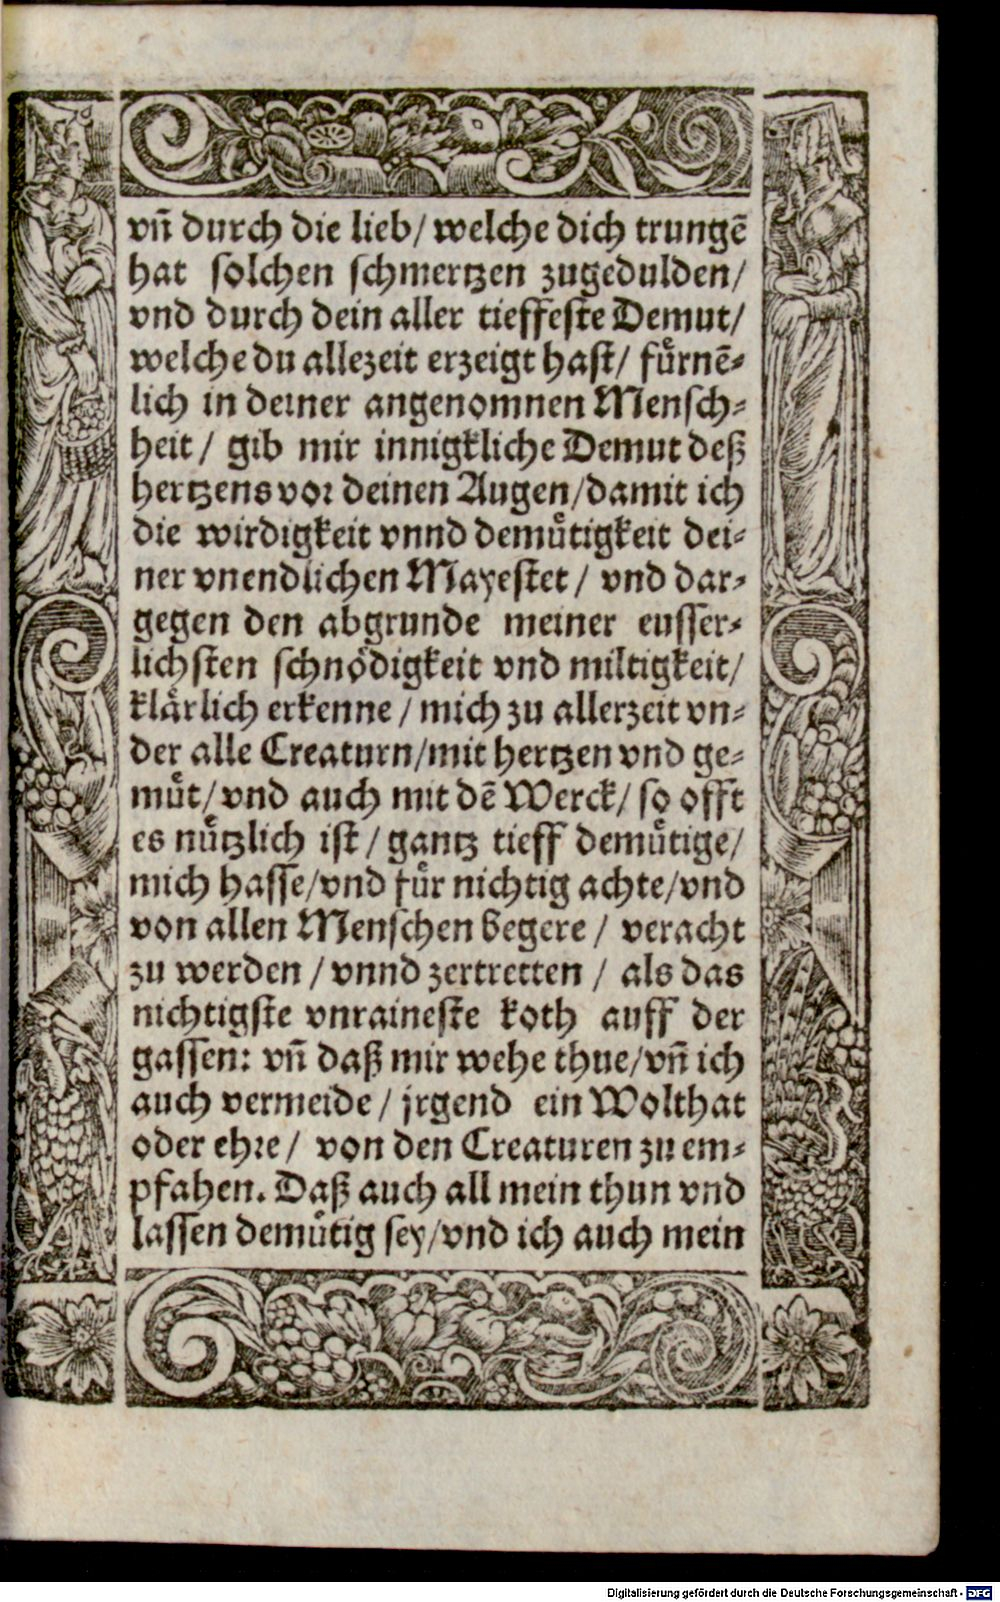 vñ durch die lieb/ welche dich trungē
hat solchen schmertzen zugedulden/
vnd durch dein aller tieffeste Demut/
welche du allezeit erzeigt hast/ fuͤrnē-
lich in deiner angenomnen Mensch-
heit/ gib mir innigkliche Demut deß
hertzens vor deinen Augen/damit ich
die wirdigkeit vnnd demuͤtigkeit dei-
ner vnendlichen Mayestet/ vnd dar-
gegen den abgrunde meiner eusser-
lichsten schnoͤdigkeit vnd miltigkeit/
klaͤrlich erkenne/ mich zu allerzeit vn-
der alle Creaturn/mit hertzen vnd ge-
muͤt/vnd auch mit dē Werck/ so offt
es nuͤtzlich ist/ gantz tieff demuͤtige/
mich hasse/vnd fuͤr nichtig achte/vnd
von allen Menschen begere/ veracht
zu werden/ vnnd zertretten/ als das
nichtigste vnraineste koth auff der
gassen: vñ daß mir wehe thue/vñ ich
auch vermeide/ jrgend ein Wolthat
oder ehre/ von den Creaturen zu em-
pfahen. Daß auch all mein thun vnd
lassen demuͤtig sey/vnd ich auch mein
Digitalisierung gefördert durch die Deutsche Forschungsgemeinschaft - DFG